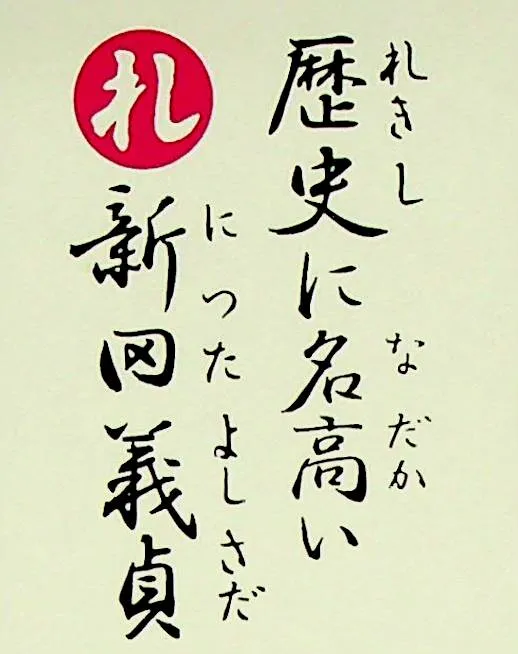 歴史に名高い
れきし なだか
札
新田義貞
につた よしさだ